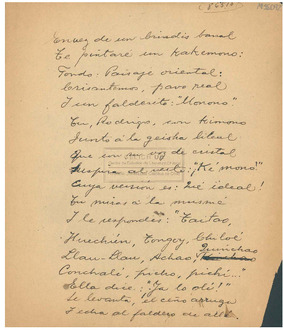 (868/a)
En vez de un brindis banal
Te pintaré un kakemono:
Fondo: Paisaje oriental:
Crisantemos, pavo real
I un falderito: "Monono".
Tu, Rodrigo, con kimono
Junto á la geisha
Que un voz de cristal
Suspira al verte: ¡"Ké mono"!
Cuya version es: ¡Qé ideal!
Tu miras á la musmé
I le respondes: "Tautao,
Huechún, Tongoy, Chiloé
Quinchao
Llau-Llau, Achao,
Conchalí, pucho, pichí..."
Ella dice: "¡Ya lo olí!"
Se levanta, el ceño arruga
I echa al faldero de allí.